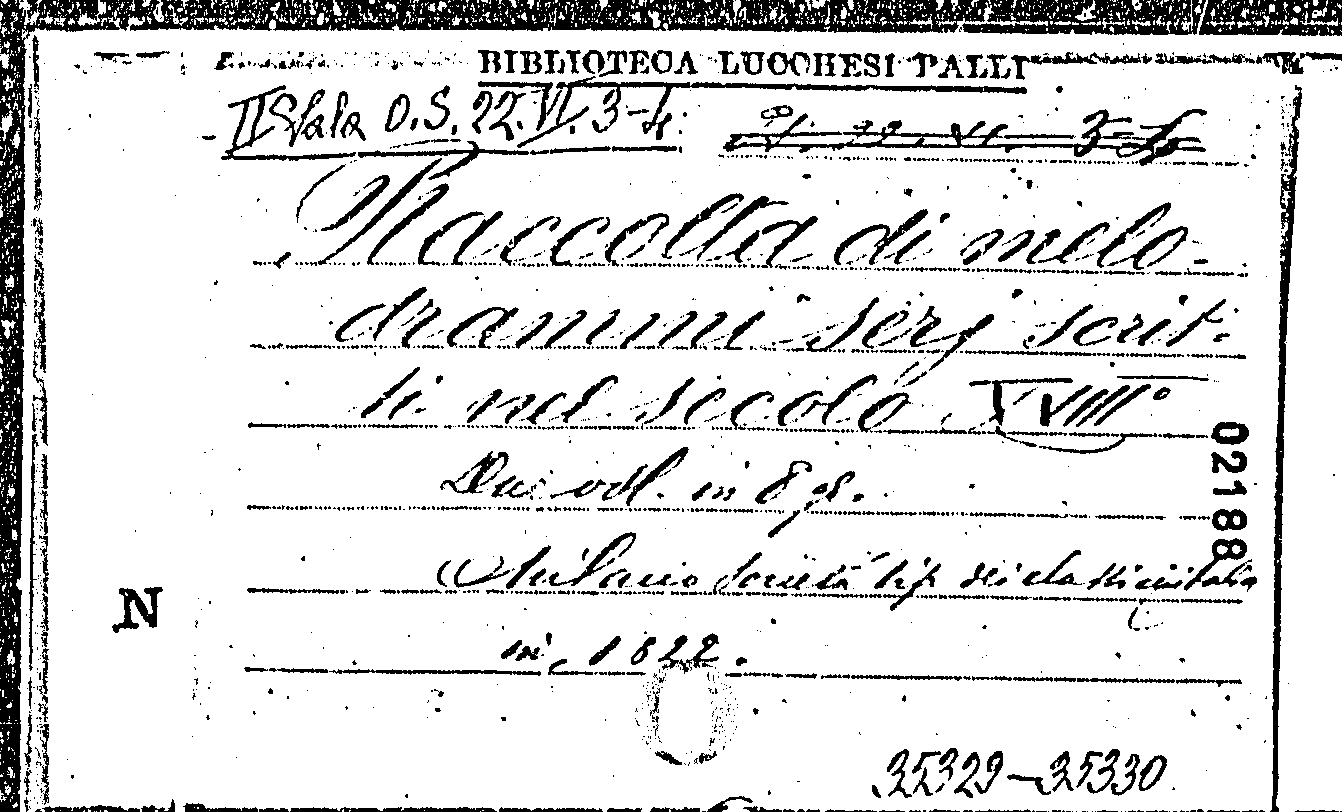 BIBLIOTECA LUCCHESI PALLI
II Sala O.S. 22. VI. 3-4.
22. VI. 3-4
Raccolta di melo-
drammi serj scrit-
ti nel secolo XVIII°
Due vol. in 8 gr.
Milano Società tip dei classici itali
ni, 1822.
N
02188
35329-35330